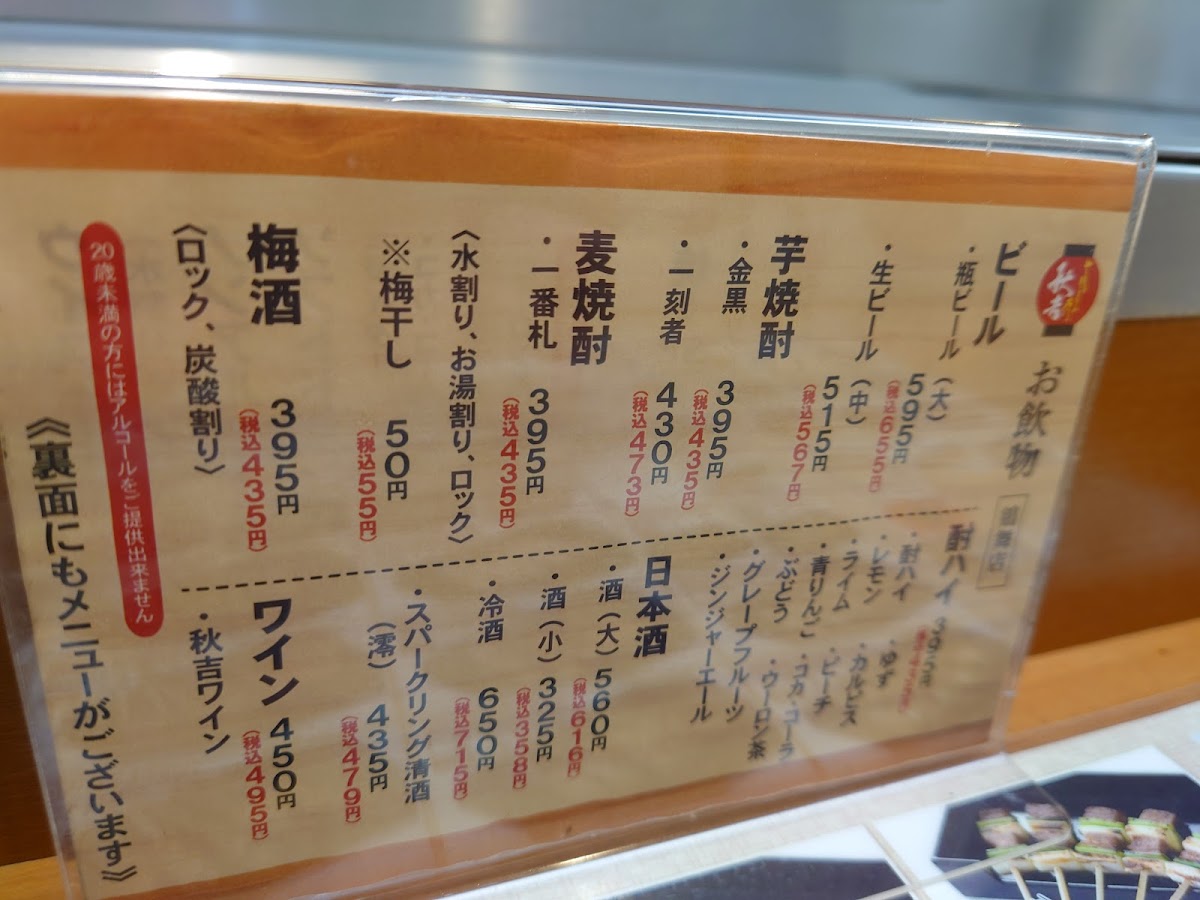 秋吉
お飲物
ビール
・瓶ビール(大)
595円
(税込655円)
・生ビール(中)
515円
(税込567円)
芋焼酎
・金黒
395円
(税込435円)
・一刻者
430円
(税込473円)
麦焼酎
・一番札
395円
(税込435円)
〈水割り、お湯割り、ロック〉
※梅干し
50円
(税込55円)
梅酒
395円
(税込435円)
〈ロック、炭酸割り〉
酎ハイ 395円
・酎ハイ
・レモン
・ゆず
・ライム
・カルピス
・青りんご
・ピーチ
・ぶどう
・コカ・コーラ
・グレープフルーツ
・ウーロン茶
・ジンジャーエール
日本酒
・酒(大) 560円
(税込616円)
・酒(小) 325円
(税込358円)
・冷酒
650円
(税込715円)
・スパークリング清酒
(澪)
435円
(税込479円)
ワイン 450円
(税込495円)
・秋吉ワイン
20歳未満の方にはアルコールをご提供出来ません
《裏面にもメニューがございます》